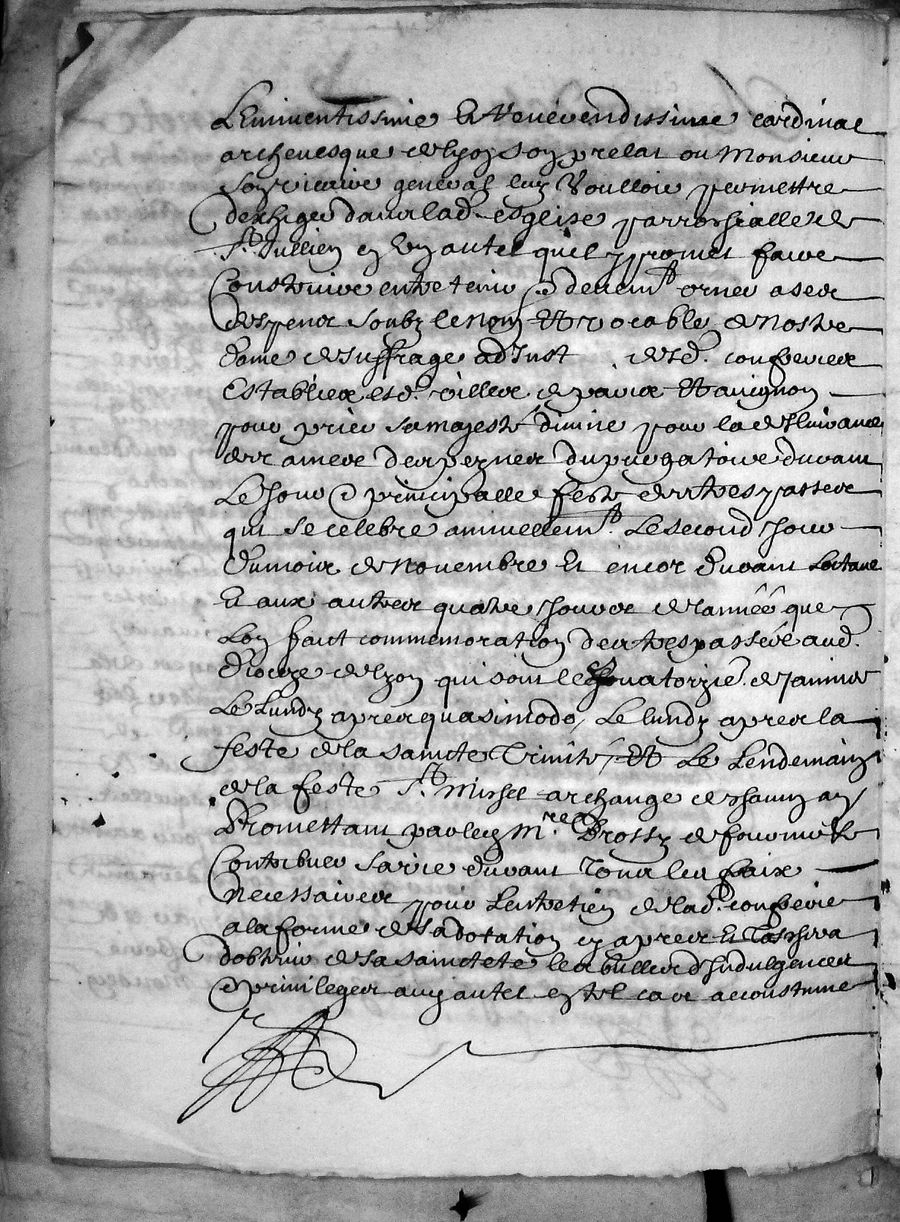 L'Eminentissime Et Reverendissime cardinal
archevesque de lyon son prelat ou Monsieur
son vicaire general luy Voulloir permettre
deriger dans lad. esglise parrochialle de
St. Jullien en un autel quil promet faire
Construire entretenir & decem.t orner a ses
despens soubz le nom Et vocable de Nostre
dame de suffrage a d'Inst de sd. confreries
Establies esd. villes de paris Et avignon
pour prier sa majesté divine pour la deslivrance
des ames des peynes du purgatoire durant
Le Jour & principalle feste des trespasses
qui se celebre annuellem.t Le second Jour
du mois de Novembre Et encor durant Loctave
Et aux autres quatre Jours de l'année que
Lon fait commemoration des trespassés aud.
dioceze de lyon qui sont le quatorzie. de Janvier
Le Lundy apres quasimodo, Le lundy apres la
feste de la saincte Trinité, Et Le Lendemain
de la feste St. Michel archange de chacun an
Promettant par led. M.re Brossy de fournir &
Contribuer sa vie durant Tous les fraix
necessaires pour Lentretien de lad. confrerie
a la forme de sa dotation cy apres Et Taschera
dobtenir de sa sainctete les bulles d'Indulgences
& privileges aud. autel en tel cas accoustume